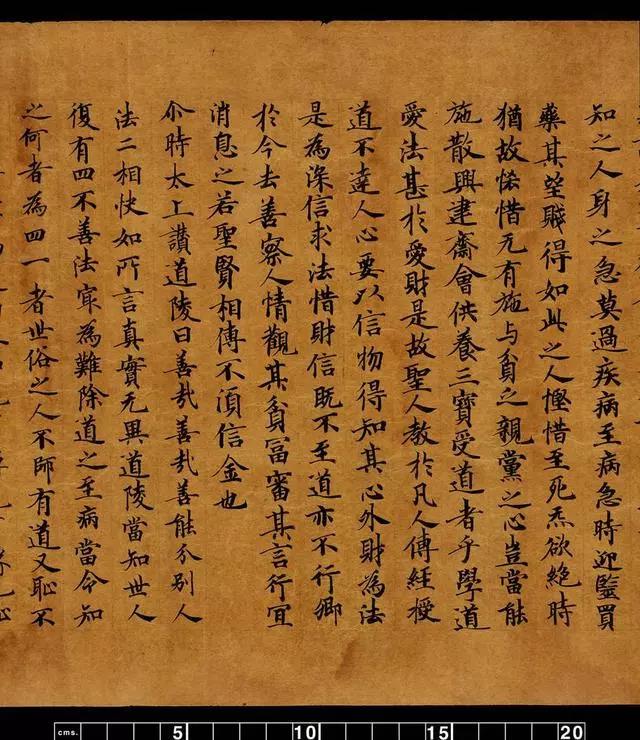 知之人身之急莫過疾病至病急時迎醫買
藥其望賤得如此之人慳惜至死炁欲絕時
猶故恡惜无有施与貧乏親黨之心豈當能
施散興建齋會供養三寶受道者乎學道
愛法甚於愛財是故聖人教於凡人傳經授
道不達人心要以信物得知其心外財為法
是為深信求法惜財信既不至道亦不行卿
於今去善察人情觀其貧冨審其言行宜
消息之若聖賢相傳不湏信金也
尒時太上讚道陵曰善哉善哉善能分別人
法二相快如所言真實无異道陵當知世人
復有四不善法㝡為難除道之至病當令知
之何者為四一者世俗之人不師有道又恥不
cms. 5 10 15 20